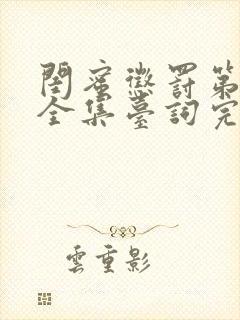 閨蜜懲罰第
全集臺詞完
雲重影